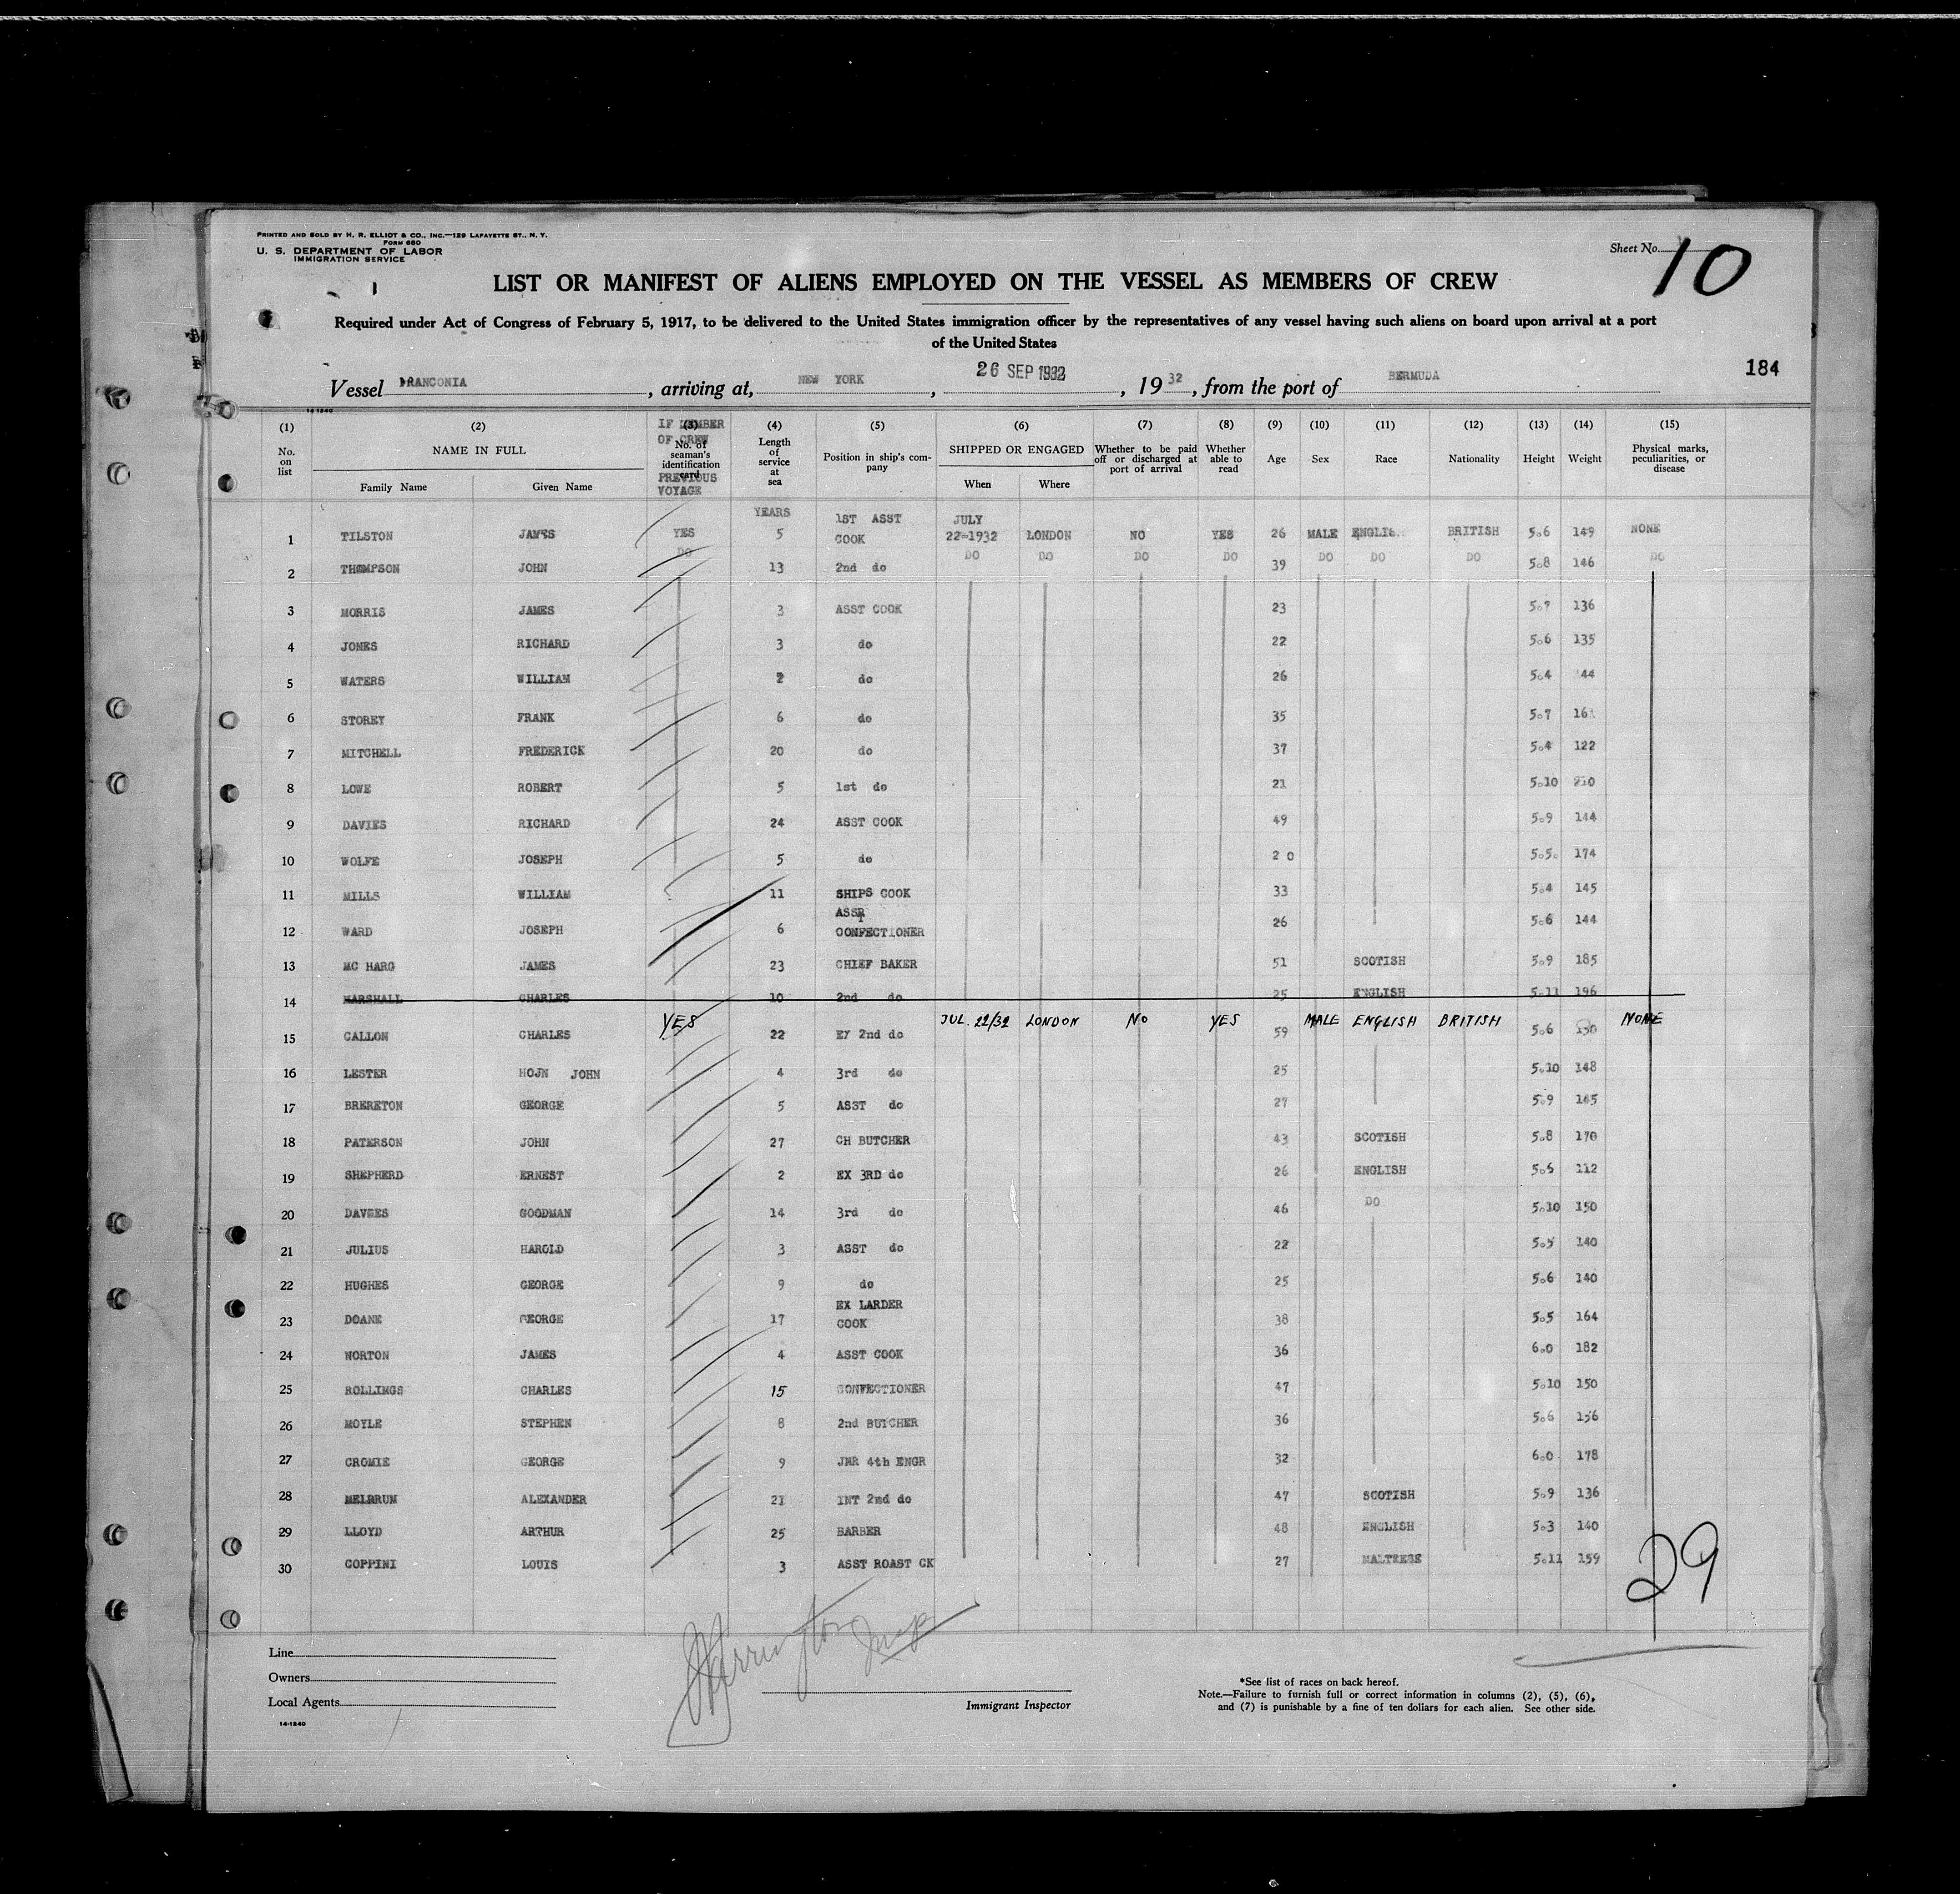 PRINTED AND SOLD BY H. R. ELLIOT & CO., INC.—129 LAFAYETTE ST., N. Y.
FORM 680
U. S. DEPARTMENT OF LABOR
IMMIGRATION SERVICE
Sheet No. 10
LIST OR MANIFEST OF ALIENS EMPLOYED ON THE VESSEL AS MEMBERS OF CREW
Required under Act of Congress of February 5, 1917, to be delivered to the United States immigration officer by the representatives of any vessel having such aliens on board upon arrival at a port
of the United States
184
Vessel FRANCONIA, arriving at, NEW YORK, 26 SEP 1932, 19 32, from the port of BERMUDA
14-1240
(1) (2) (3) (4) (5) (6) (7) (8) (9) (10) (11) (12) (13) (14) (15)
No. on list NAME IN FULL Family Name Given Name No. of seaman's identification card IF MEMBER OF CREW PREVIOUS VOYAGE Length of service at sea Position in ship's company SHIPPED OR ENGAGED When Where Whether to be paid off or discharged at port of arrival Whether able to read Age Sex Race Nationality Height Weight Physical marks, peculiarities, or disease
YEARS
1 TILSTON JAMES YES 5 1ST ASST COOK JULY 22-1932 LONDON NO YES 26 MALE ENGLIS BRITISH 5.6 149 NONE
2 THOMPSON JOHN DO 13 2nd do DO DO DO DO 39 DO DO DO 5.8 146 DO
3 MORRIS JAMES 3 ASST COOK 23 5.7 136
4 JONES RICHARD 3 do 22 5.6 135
5 WATERS WILLIAM 2 do 26 5.4 44
6 STOREY FRANK 6 do 35 5.7
7 MITCHELL FREDERICK 20 do 37 5.4 122
8 LOWE ROBERT 5 1st do 21 5.10
9 DAVIES RICHARD 24 ASST COOK 49 5.9 144
10 WOLFE JOSEPH 5 do 2 0 5.5. 174
11 MILLS WILLIAM 11 SHIPS COOK 33 5.4 145
12 WARD JOSEPH 6 ASST CONFECTIONER 26 5.6 144
13 MC HARG JAMES 23 CHIEF BAKER 51 SCOTISH 5.9 185
14 MARSHALL CHARLES 10 2nd do 25 ENGLISH 5.11 196
15 CALLON CHARLES YES 22 EY 2nd do JUL. 22/32 LONDON NO YES 59 MALE ENGLISH BRITISH 5.6 NONE
16 LESTER HOJN JOHN 4 3rd do 25 5.10 148
17 BRERETON GEORGE 5 ASST do 27 5.9
18 PATERSON JOHN 27 CH BUTCHER 43 SCOTISH 5.8 170
19 SHEPHERD ERNEST 2 EX 3RD do 26 ENGLISH 112
20 GOODMAN 14 3rd do 46 DO 5.10 150
21 JULIUS HAROLD 3 ASST do 22 5.5 140
22 HUGHES GEORGE 9 do 25 5.6 140
23 DOANE GEORGE 17 EX LARDER COOK 38 5.5 164
24 NORTON JAMES 4 ASST COOK 36 6.0 182
25 ROLLINGS CHARLES 15 CONFECTIONER 47 5.10 150
26 MOYLE STEPHEN 8 2nd BUTCHER 36 5.6 156
27 CROMIE GEORGE 9 JNR 4th ENGR 32 6.0 178
28 ALEXANDER 21 INT 2nd do 47 SCOTISH 5.9 136
29 LLOYD ARTHUR 25 BARBER 48 ENGLISH 5.3 140
30 COPPINI LOUIS 3 ASST ROAST CK 27 MALTEESE 5.11 159
29
Line
Owners
Local Agents
14-1240
Immigrant Inspector
*See list of races on back hereof.
Note.—Failure to furnish full or correct information in columns (2), (5), (6),
and (7) is punishable by a fine of ten dollars for each alien. See other side.